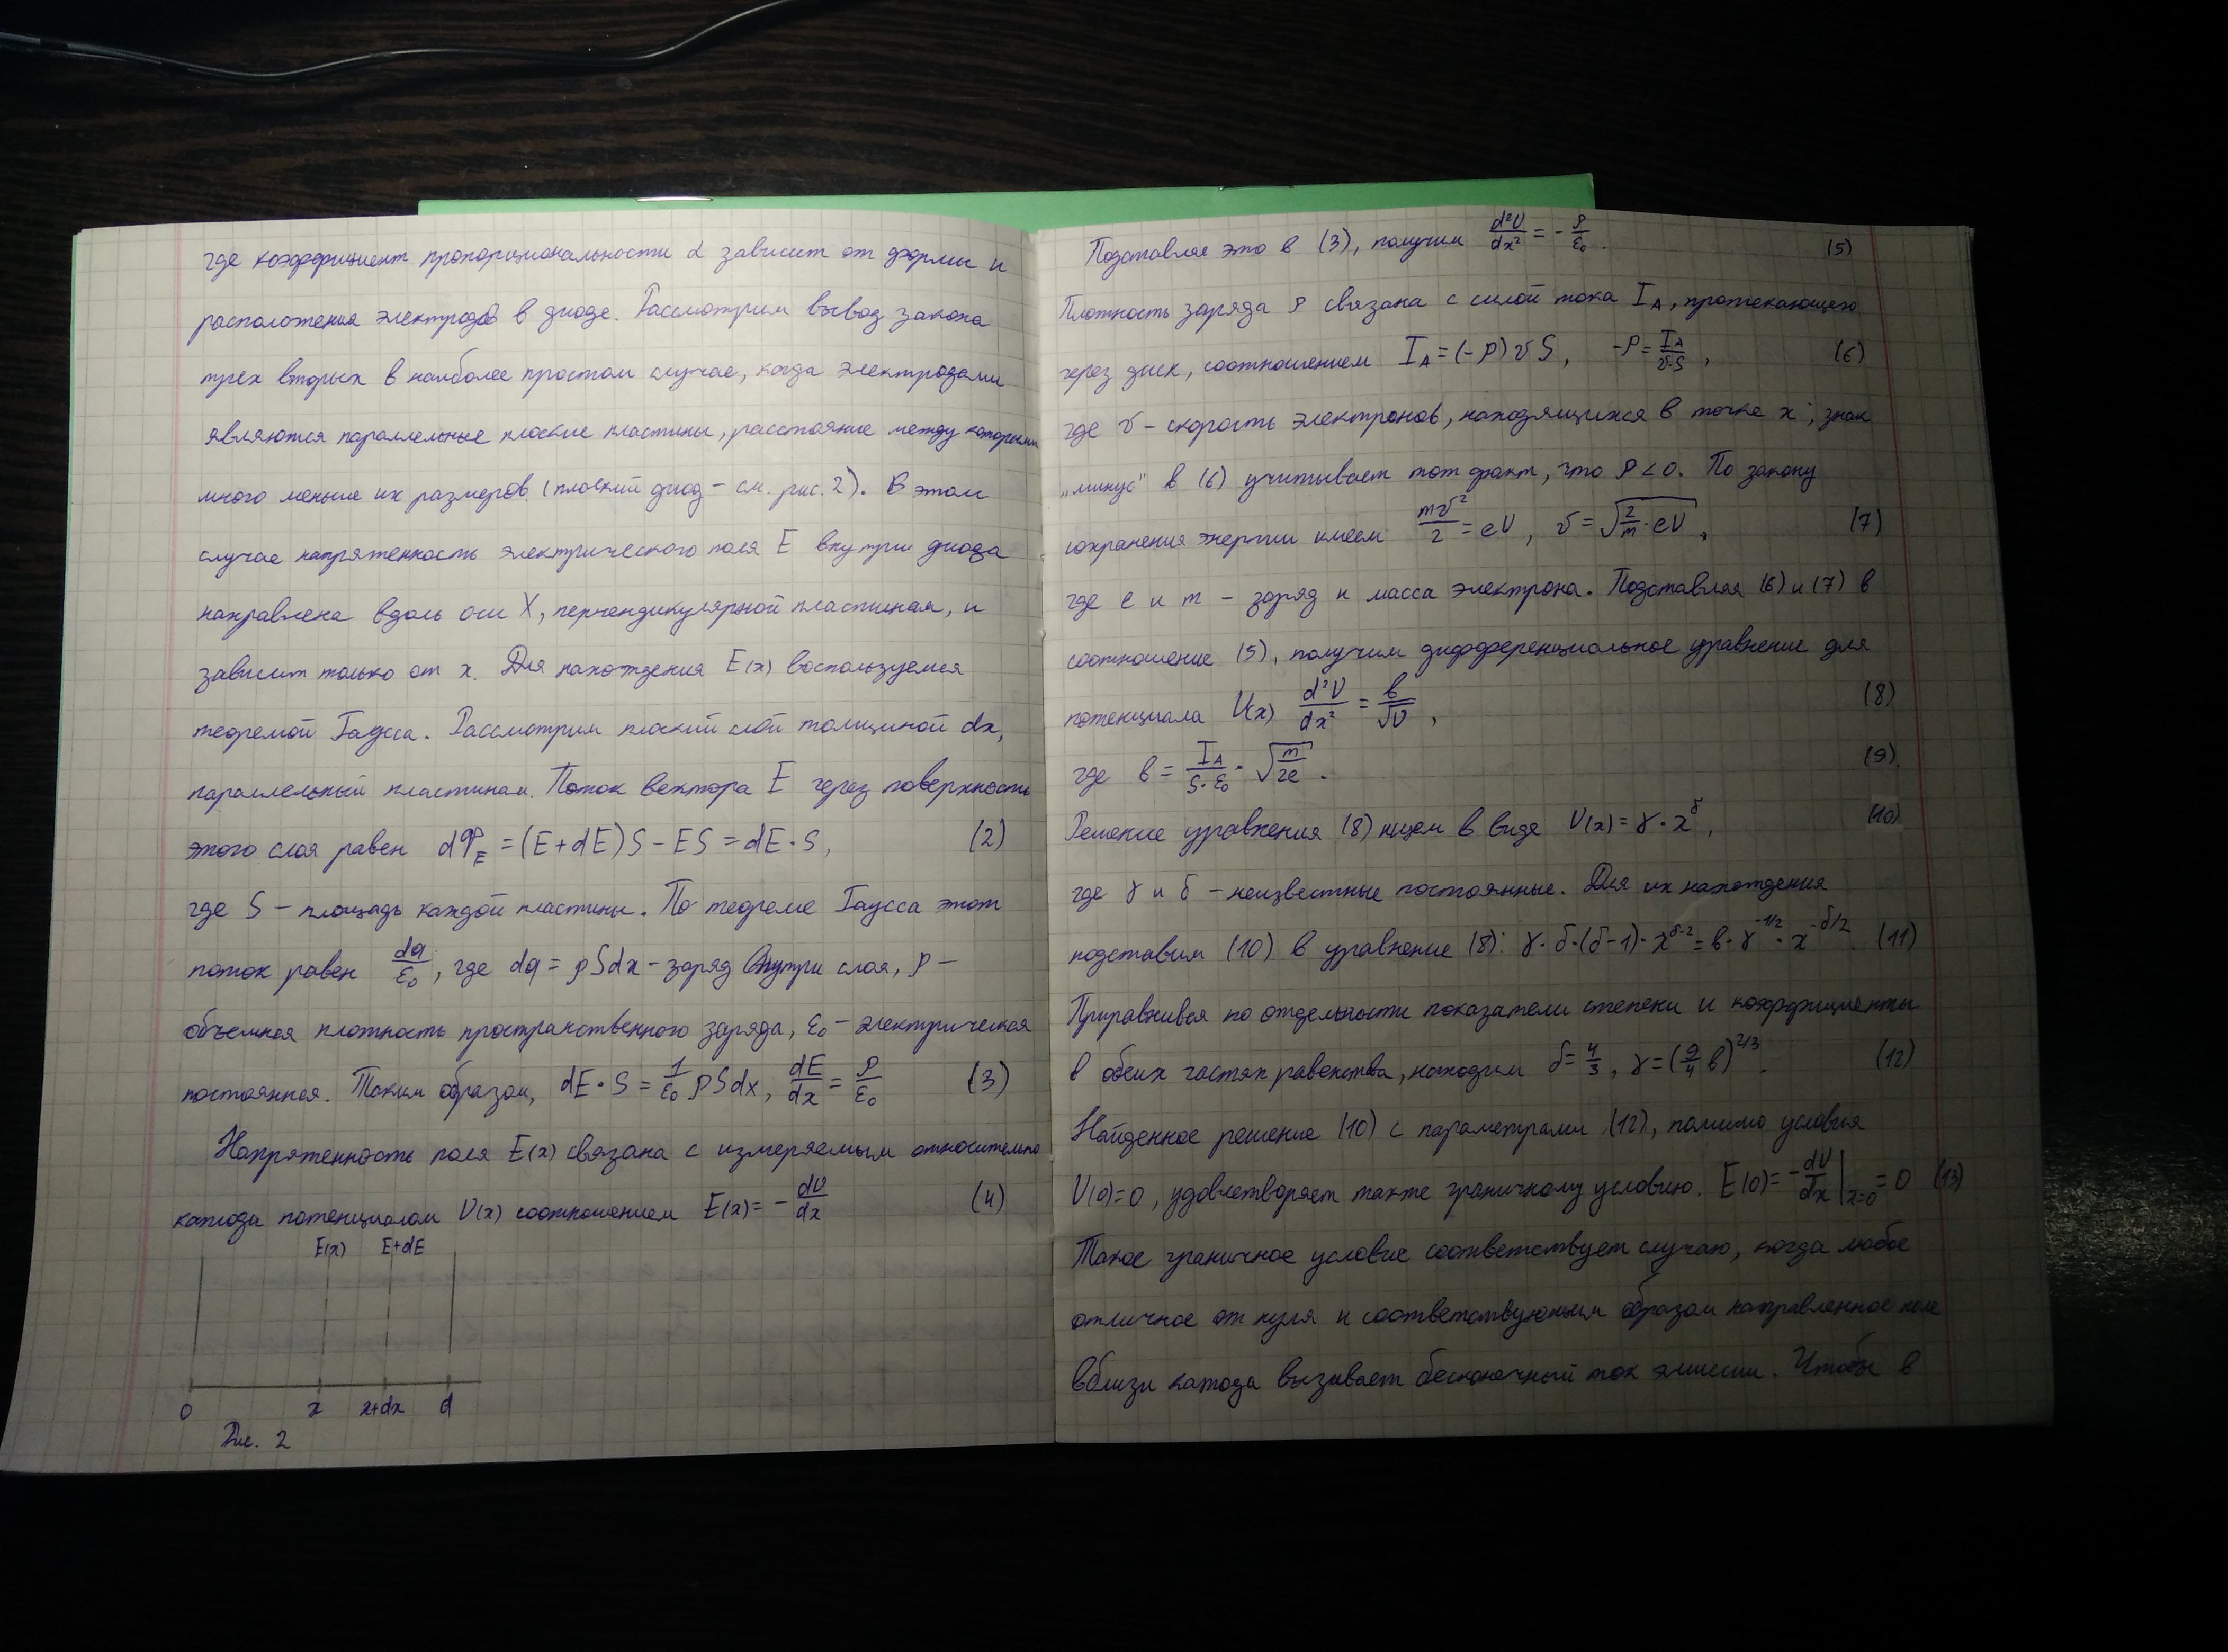 где коэффициент пропорциональности α зависит от формы и
расположения электродов в диоде. Рассмотрим вывод закона
трех вторых в наиболее простом случае, когда электродами
являются параллельные плоские пластины, расстояние между которыми
много меньше их размеров (плоский диод - см. рис. 2). В этом
случае напряженность электрического поля E внутри диода
направлена вдоль оси X, перпендикулярной пластинам, и
зависит только от x. Для нахождения E(x) воспользуемся
теоремой Гаусса. Рассмотрим плоский слой толщиной dx,
параллельный пластинам. Поток вектора E через поверхность
этого слоя равен dΦ_E = (E+dE)S - ES = dE·S, (2)
где S - площадь каждой пластины. По теореме Гаусса этот
поток равен dq/ε₀, где dq = ρSdx - заряд внутри слоя, ρ -
объемная плотность пространственного заряда, ε₀ - электрическая
постоянная. Таким образом, dE·S = 1/ε₀ ρSdx, dE/dx = ρ/ε₀ (3)
Напряженность поля E(x) связана с измеряемым относительно
катода потенциалом U(x) соотношением E(x) = - dU/dx (4)
E(x) E+dE
0 x x+dx d
Рис. 2
Подставляя это в (3), получим d²U/dx² = - ρ/ε₀. (5)
Плотность заряда ρ связана с силой тока I_A, протекающего
через диск, соотношением I_A = (-ρ)vS, -ρ = I_A/(v·S), (6)
где v - скорость электронов, находящихся в точке x; знак
„минус" в (6) учитывает тот факт, что ρ < 0. По закону
сохранения энергии имеем: mv²/2 = eU, v = √(2/m · eU), (7)
где e и m - заряд и масса электрона. Подставляя (6) и (7) в
соотношение (5), получим дифференциальное уравнение для
потенциала U(x) d²U/dx² = в/√U, (8)
где в = I_A/(S·ε₀) · √(m/2e). (9)
Решение уравнения (8) ищем в виде U(x) = γ·x^δ, (10)
где γ и δ - неизвестные постоянные. Для их нахождения
подставим (10) в уравнение (8): γ·δ·(δ-1)·x^(δ-2) = в·γ^(-1/2)·x^(-δ/2). (11)
Приравнивая по отдельности показатели степени и коэффициенты
в обеих частях равенства, находим δ = 4/3, γ = (9/4 в)^(2/3). (12)
Найденное решение (10) с параметрами (12), помимо условия
U(0)=0, удовлетворяет также граничному условию. E(0) = - dU/dx |x=0 = 0 (13)
Такое граничное условие соответствует случаю, когда любое
отличное от нуля и соответствующим образом направленное поле
вблизи катода вызывает бесконечный ток эмиссии. Чтобы в